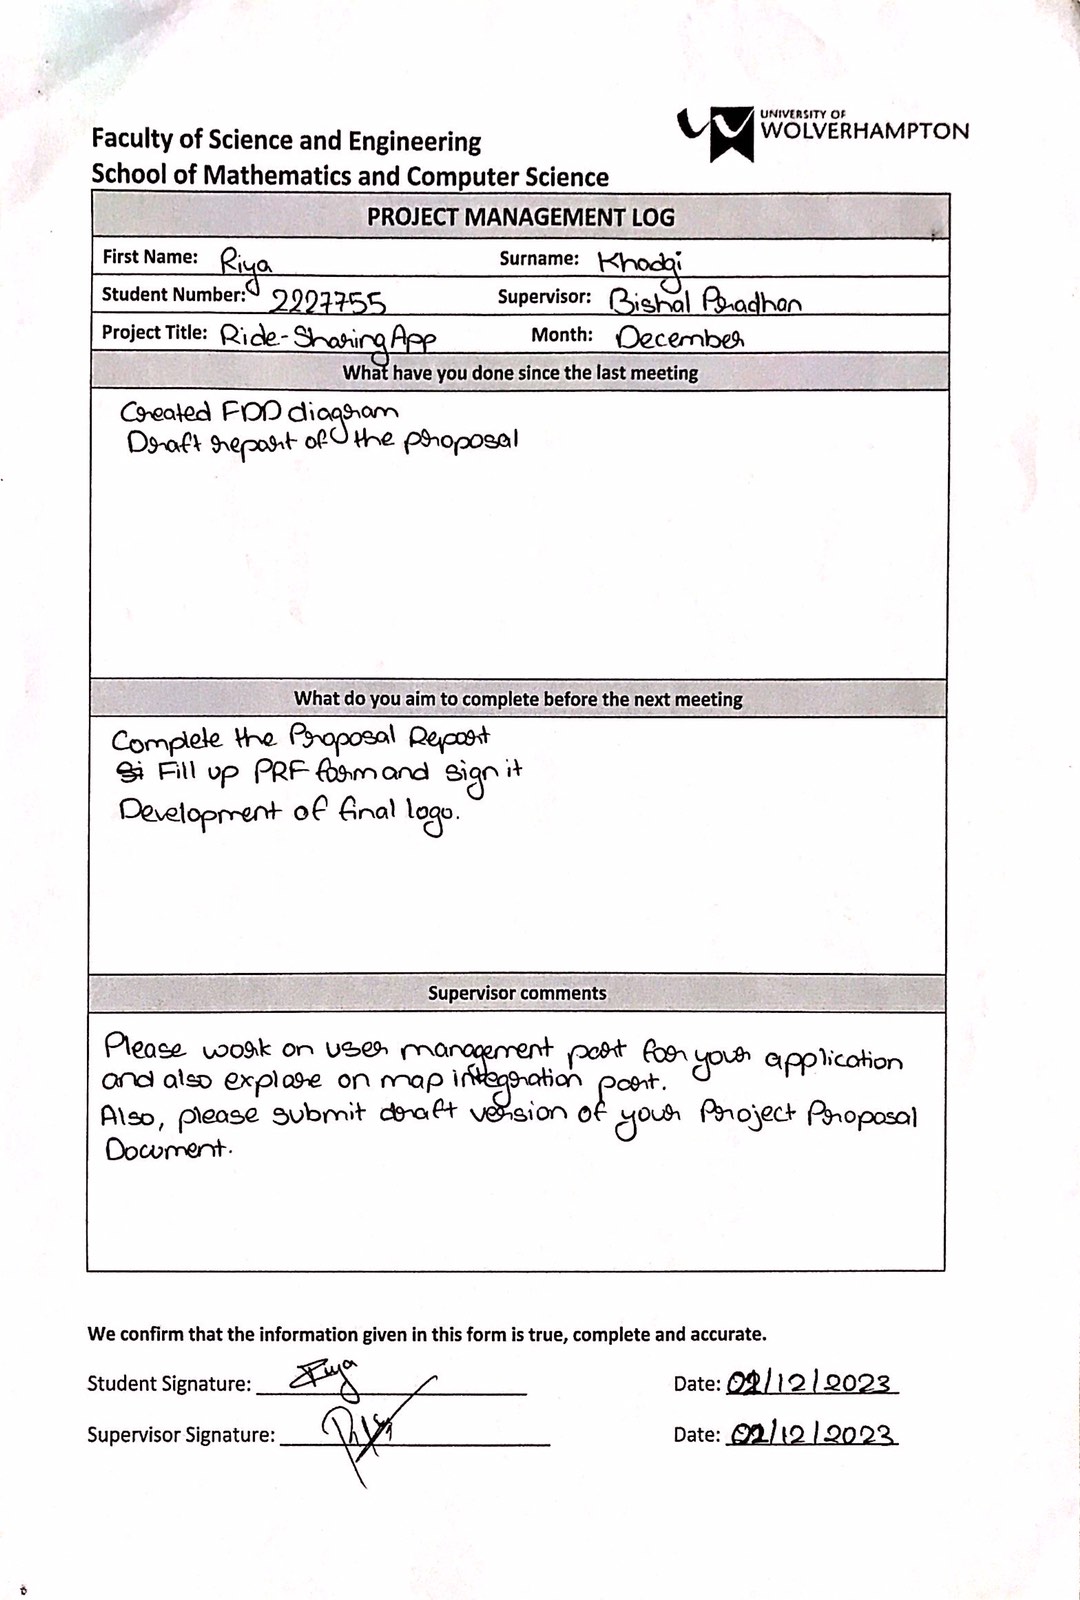 UNIVERSITY OF
WOLVERHAMPTON
Faculty of Science and Engineering
School of Mathematics and Computer Science
PROJECT MANAGEMENT LOG
First Name: Riya Surname: Khadgi
Student Number: 2227755 Supervisor: Bishal Pradhan
Project Title: Ride-Sharing App Month: December
What have you done since the last meeting
Created FDD diagram
Draft report of the proposal
What do you aim to complete before the next meeting
Complete the Proposal Report
Fill up PRF form and sign it
Development of final logo.
Supervisor comments
Please work on user management part for your application
and also explore on map integration part.
Also, please submit draft version of your Project Proposal
Document.
We confirm that the information given in this form is true, complete and accurate.
Student Signature: Riya Date: /12/2023
Supervisor Signature: Date: /12/2023